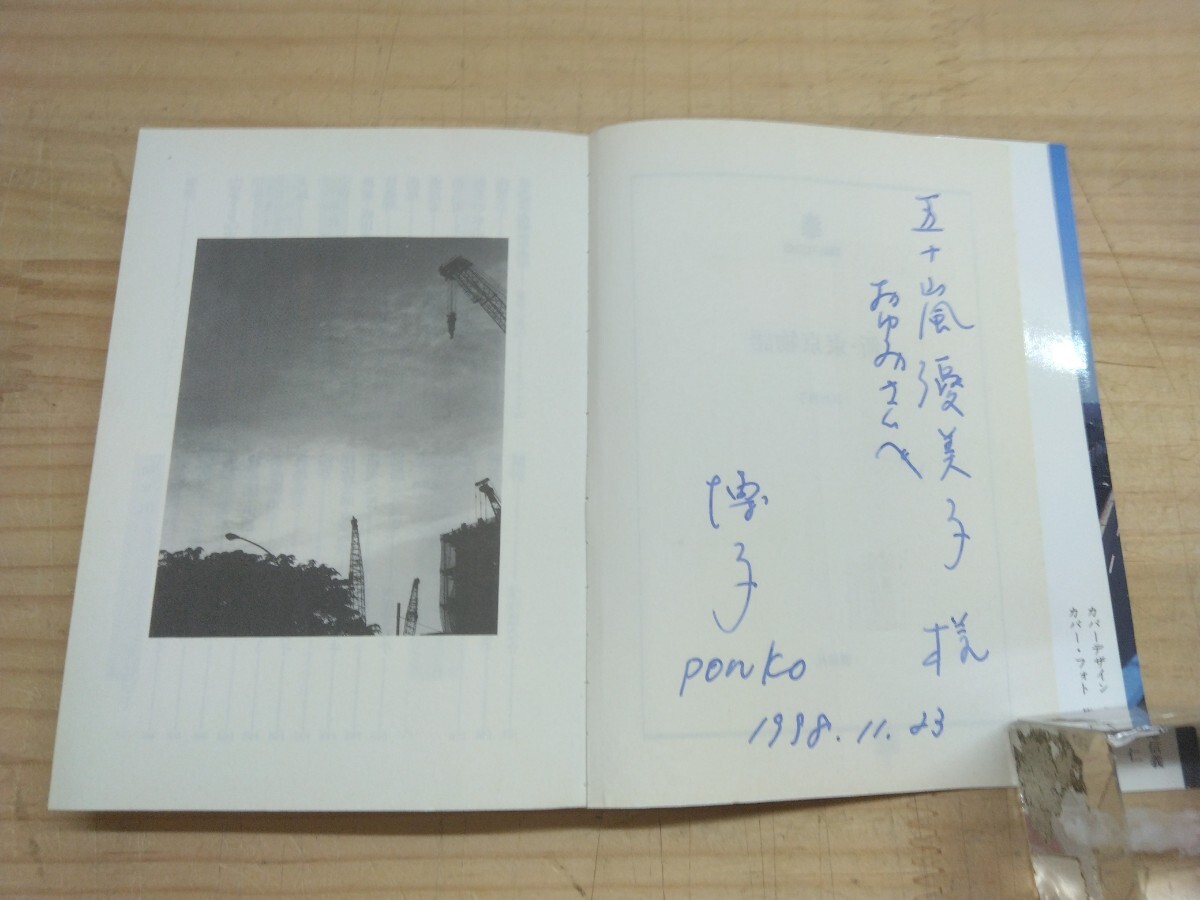 カバーデザイン
カバー・フォト
信義
仁
五十嵐優美子 様
おゆみさんへ
博子
ponko
1998.11.23